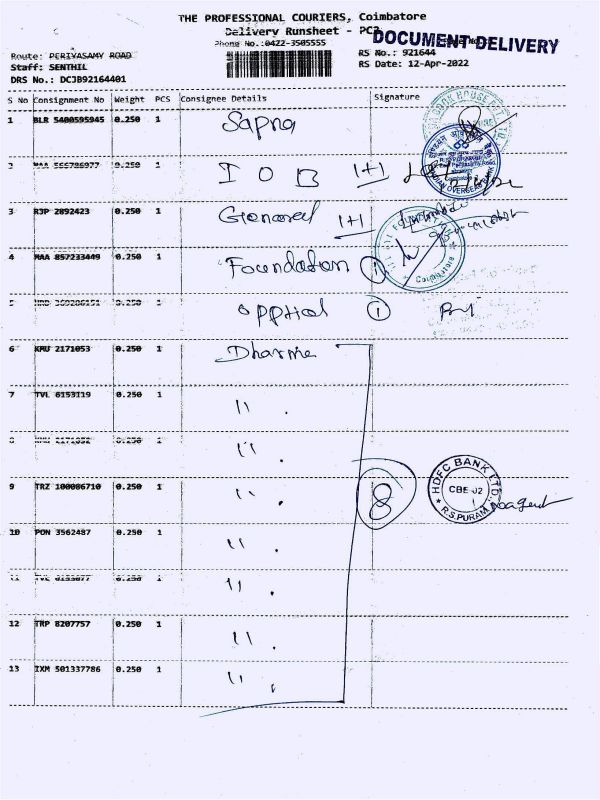 THE PROFESSIONAL COURIERS, Coimbatore
Delivery Runsheet - PC2
DOCUMENT DELIVERY
Phone No.:0422-3505555
Route: PERIYASAMY ROAD
RS No.: 921644
Staff: SENTHIL
RS Date: 12-Apr-2022
DRS No.: DCJB92164401
S No Consignment No Weight PCS Consignee Details Signature
1 BLR 5400595945 0.250 1 Sapna
2 MAA 0.250 1 I O B 1+1
INDIAN OVERSEAS BANK
3 RJP 2892423 0.250 1 General 1+1
4 MAA 857233449 0.250 1 Foundation 1
Coimbatore
5 0.250 1 1
6 KMU 2171053 0.250 1 Dharma
7 TVL 6153119 0.250 1 "
8 0.250 1 "
9 TRZ 100086710 0.250 1 " 8
HDFC BANK LTD.
CBE-02
R.S.PURAM
10 PON 3562487 0.250 1 "
11 0.250 1 "
12 TRP 8207757 0.250 1 "
13 IXM 501337786 0.250 1 "